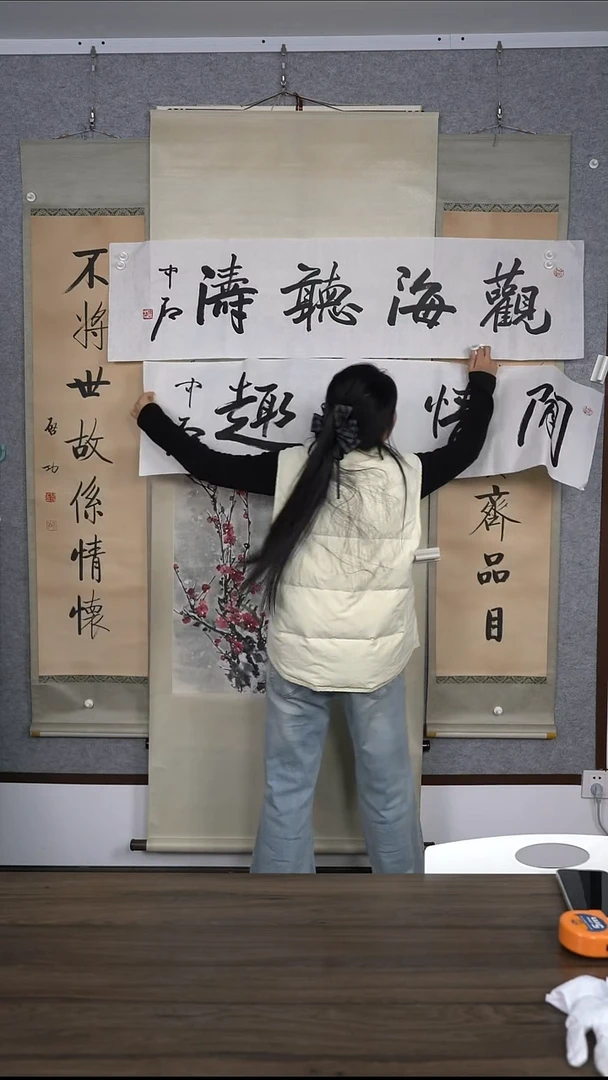 觀海聽濤
中石
情趣
中石
齊品目
不將世故係情懷
启功